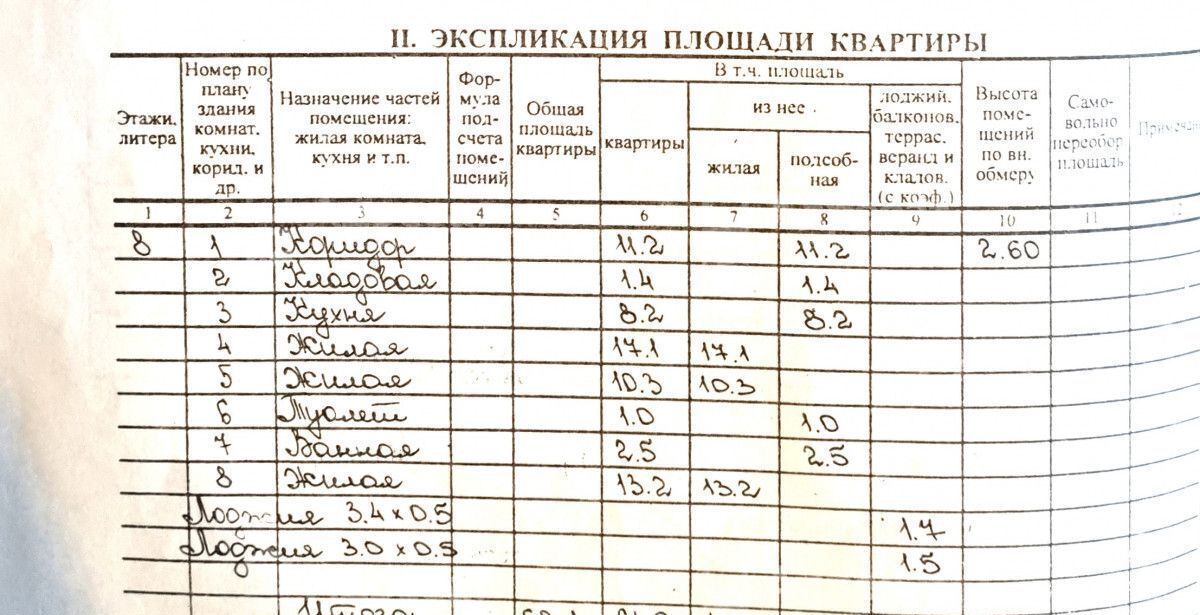 II. ЭКСПЛИКАЦИЯ ПЛОЩАДИ КВАРТИРЫ
Этажи, литера
Номер по плану здания комнат, кухни, корид. и др.
Назначение частей помещения: жилая комната, кухня и т.п.
Формула подсчета помещений
Общая площадь квартиры
В т.ч. площадь
квартиры
из нее
жилая
подсобная
лоджий, балконов, террас, веранд и кладов. (с коэф.)
Высота помещений по вн. обмеру
Самовольно переобор. площадь
1 2 3 4 5 6 7 8 9 10 11 12
8 1 Коридор 11.2 11.2 2.60
2 Кладовая 1.4 1.4
3 Кухня 8.2 8.2
4 Жилая 17.1 17.1
5 Жилая 10.3 10.3
6 Туалет 1.0 1.0
7 Ванная 2.5 2.5
8 Жилая 13.2 13.2
Лоджия 3.4 x 0.5 1.7
Лоджия 3.0 x 0.5 1.5
Итого